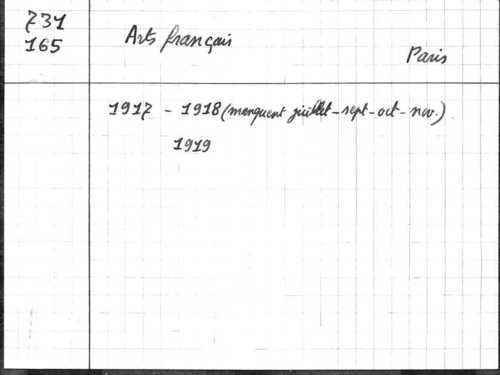 731
165
Arts français
Paris
1917 - 1918 (manquent juillet - sept - oct - nov.)
1919